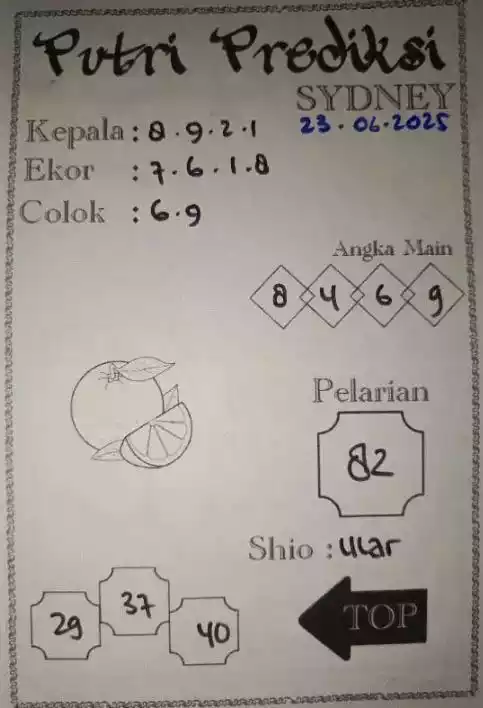 Putri Prediksi
SYDNEY
23.06.2025
Kepala : 8.9.2.1
Ekor : 7.6.1.8
Colok : 6.9
Angka Main
8 4 6 9
Pelarian
82
Shio : ular
29 37 40
TOP